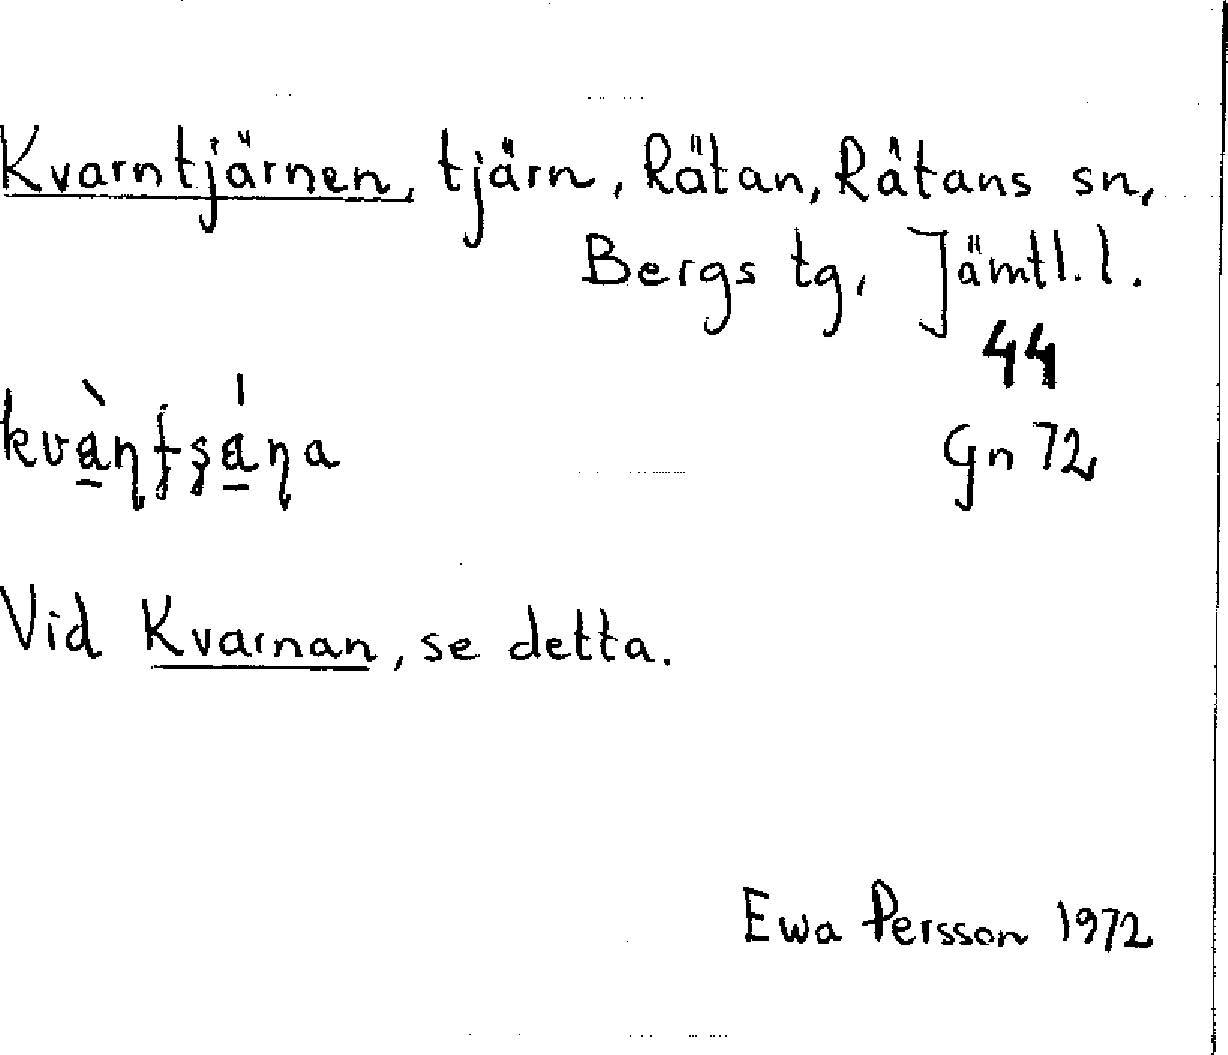 Kvarntjärnen, tjärn, Rätan, Rätans sn,
Bergs tg, Jämtl. l.
44
Gn 72
Vid Kvarnan, se detta.
Ewa Persson 1972